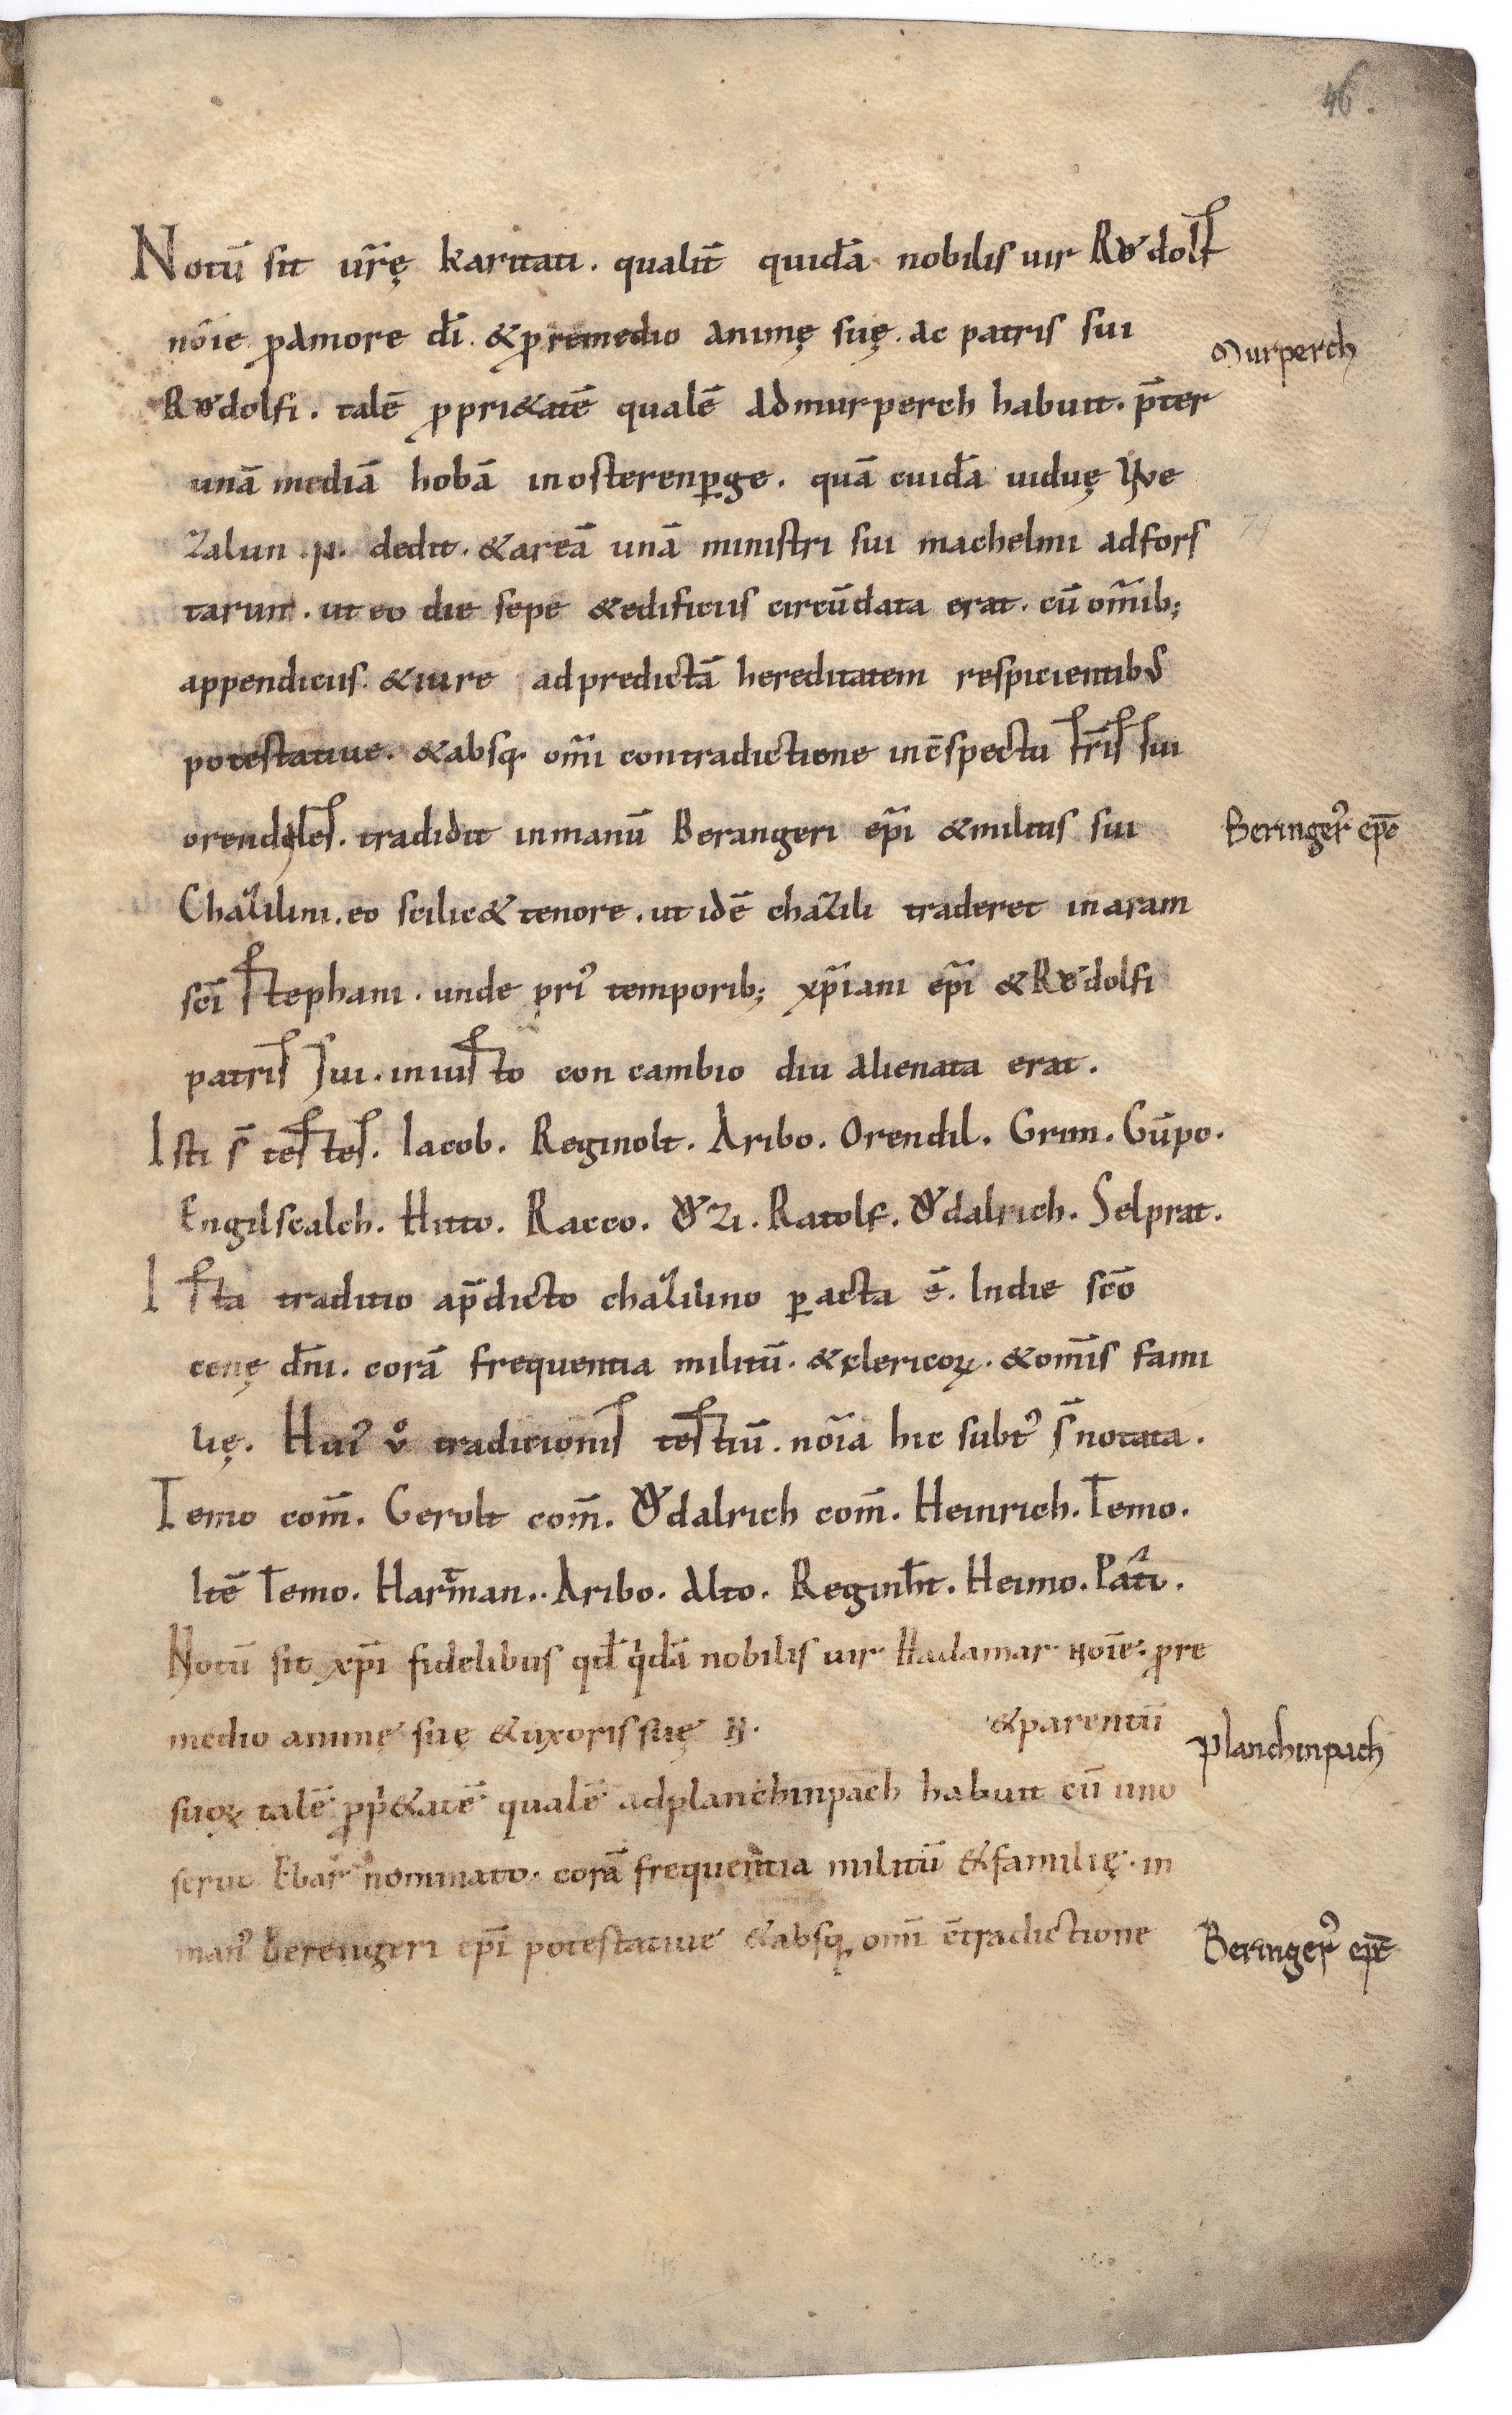 46.
Notū sit ur̄ę karitati. qualit̄ quidā nobilis uir Roͮdolf
nōie ꝓ amore dī. & ꝓ remedio animę suę. ac patris sui
Murperch
Roͮdolfi. talē ꝓpri&atē qualē ad murperch habuit. p̄ter
unā mediā hobā in osterenꝑge. quā cuidā uiduę
zalun .N. dedit. & areā unā ministri sui machelmi ad fors
tarun. ut eo die sepe & edificiis circūdata erat. cū om̄ib;
appendiciis. & iure ad predictā hereditatem respicientibus
potestatiue. & absq; om̄i contradictione in c̄spectu fr̄is sui
orendiles. tradidit in manū Berangeri ep̄i & militis sui
Beringerꝰ ep̄c
Chazilini. eo scilic& tenore. ut idē chazili traderet in aram
sc̄i Stephani. unde priꝰ temporib; xp̄iani ep̄i & Roͮdolfi
patris sui. iniusto con cambio diu alienata erat.
Isti s̄ testes. Iacob. Reginolt. Aribo. Orendil. Grim. Gūpo.
Engilscalch. Hitto. Racco. Oͮzi. Ratolf. Oͮdalrich. Selprat.
Ista traditio a p̄dicto chazilino ꝑacta ē. In die sc̄o
cenę dn̄i. corā frequentia militū. & clericoꝝ. & om̄is fami
lię. Huiꝰ ů tradicionis testiū. nōia hic subtꝰ s̄ notata.
Temo com̄. Gerolt com̄. Oͮdalrich com̄. Heinrich. Temo.
Itē Temo. Hartman. Aribo. Alto. Reginh̄t. Heimo. Pazi.
Notū sit xp̄i fidelibus qd̄ qͥdā nobilis uir Hadamar nōie. ꝓ re
medio animę suę & uxoris suę N. & parentū
Planchinpach
suoꝝ talē ꝓpͥ&atē qualē ad planchinpach habuit cū uno
seruo nominato. corā frequentia militū & familię. in
manꝰ Berengeri ep̄i potestatiue & absq; om̄i c̄tradictione
Beringerꝰ ep̄c